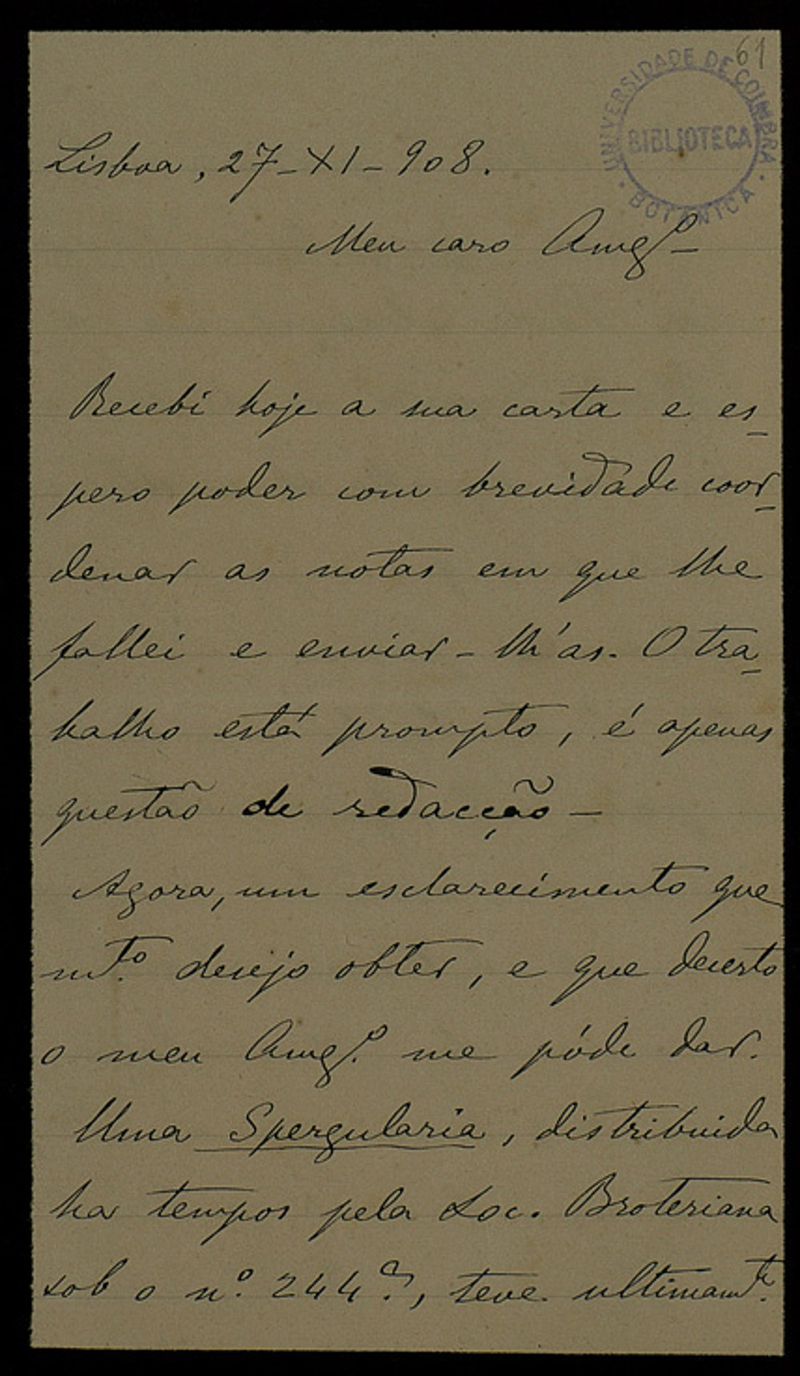 61
UNIVERSIDADE DE COIMBRA
BIBLIOTECA
BOTANICA
Lisboa, 27-XI-908.
Meu caro Amg.º -
Recebi hoje a sua carta e es-
pero poder com brevidade coor-
denar as notas em que lhe
fallei e enviar-lh'as. O tra-
balho está prompto, é apenas
questão de redacção -
Agora, um esclarecimento que
m.to desejo obter, e que decerto
o meu Amg.º me póde dar.
Uma Spergularia, distribuida
ha tempos pela Soc. Broteriana
sob o n.º 244ª, teve ultimam.te